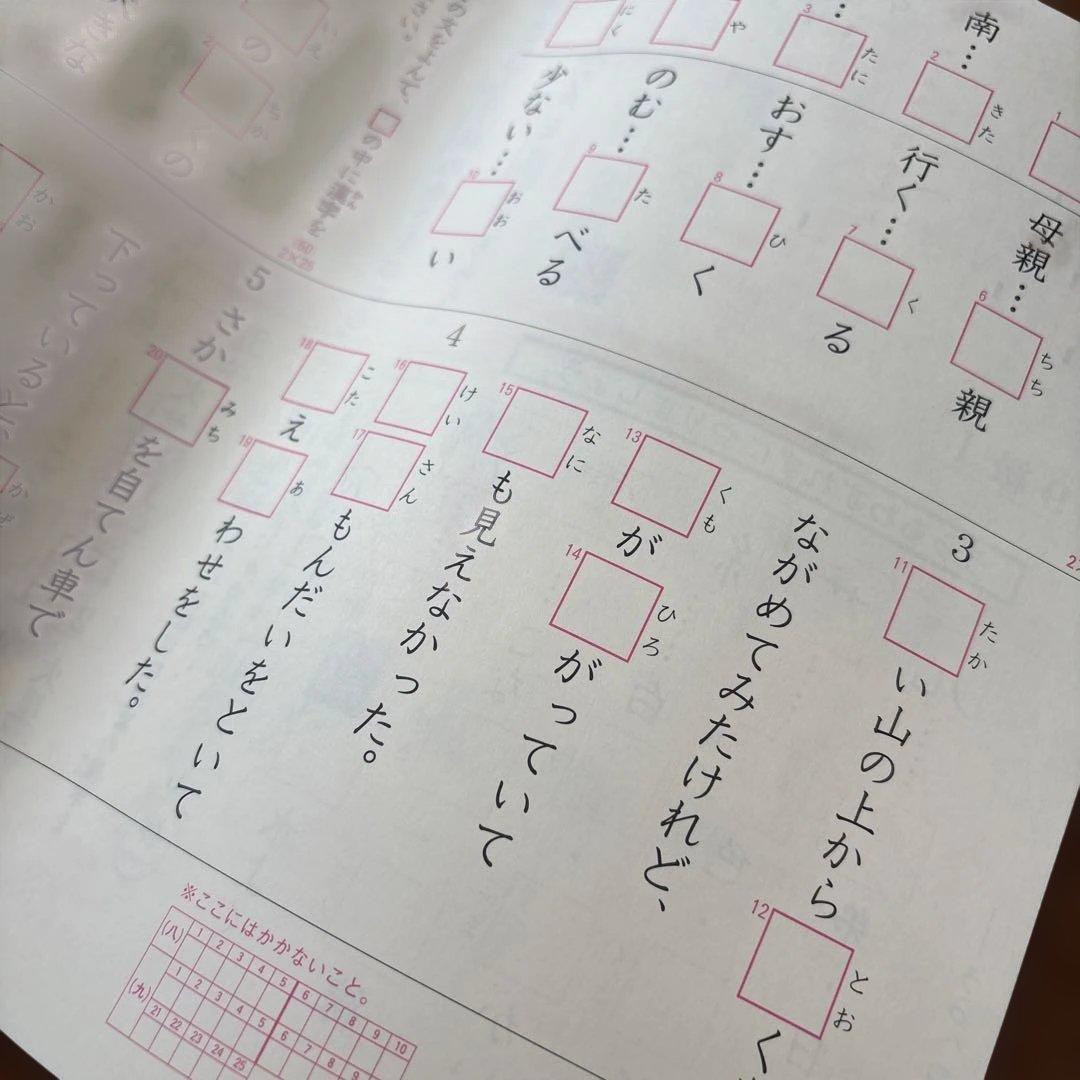 南…
2 きた
3 たに
や
にく
1
母親…
6 ちち 親
行く…
7 く る
おす…
8 ひ く
のむ…
9 た べる
少ない…
10 おお い
3
11 たか い山の上から 12 とお く
ながめてみたけれど、
13 くも が 14 ひろ がっていて
15 なに も見えなかった。
4
16 けい 17 さん もんだいをといて
18 こた え 19 あ わせをした。
5
さか 20 みち を自てん車で
下っていると、
の中に漢字を
2×25
の
の
かお
※ここにはかかないこと。
(八) 1 2 3 4 5 6 7 8 9 10
(九) 1 2 3 4 5 6 7 8 9
21 22 23 24 25